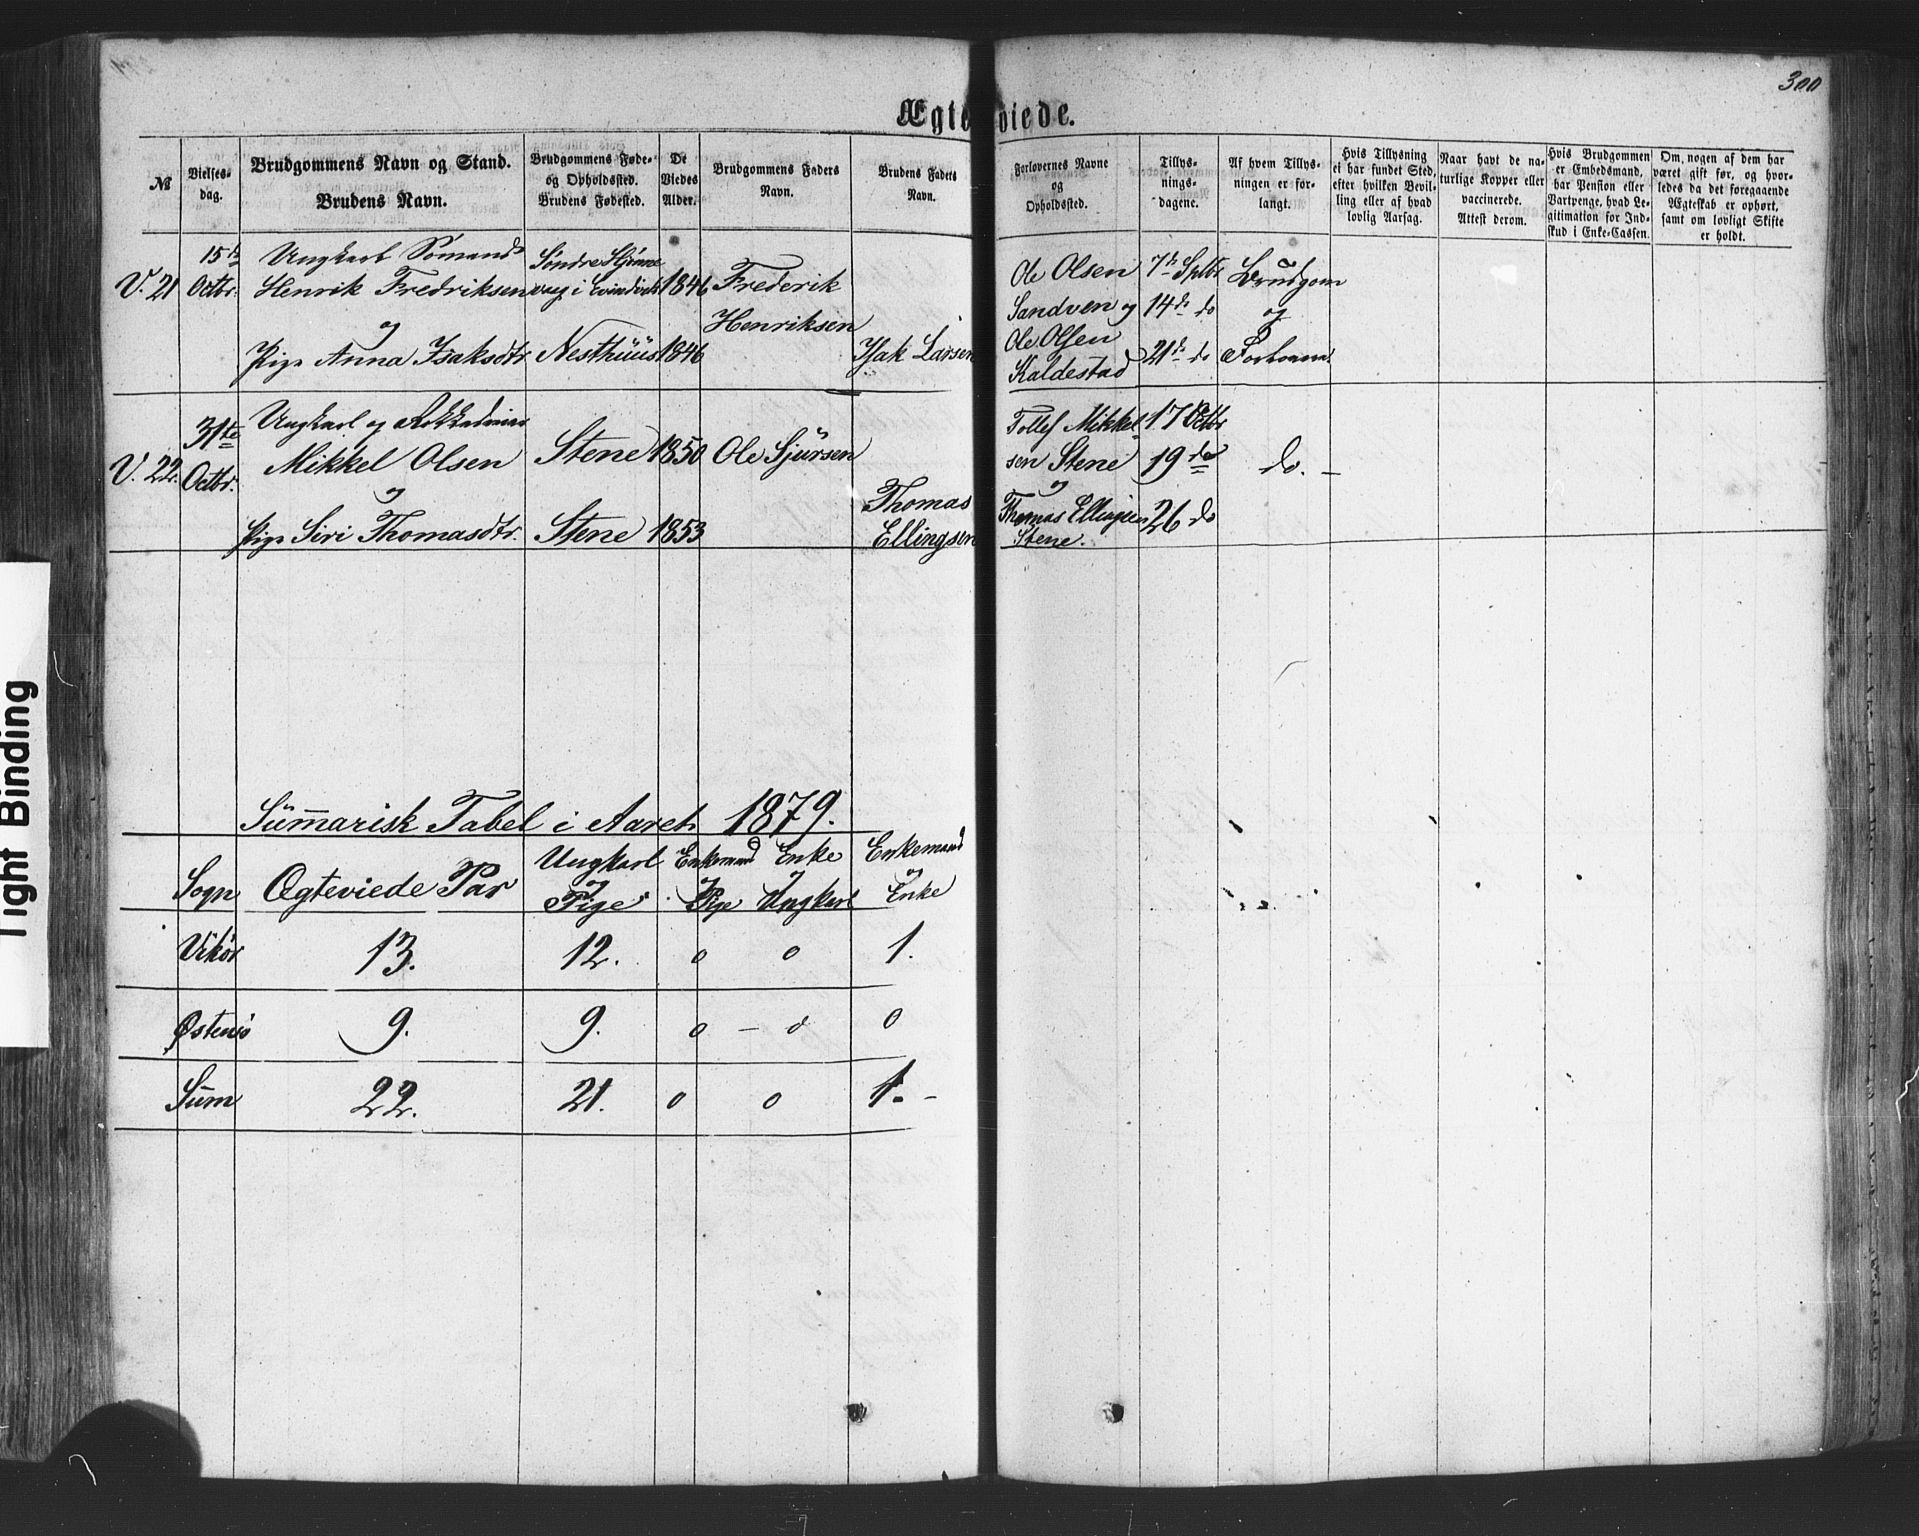 300
Ægteviede.
№
Vielses-
dag.
Brudgommens Navn og Stand.
Brudens Navn.
Brudgommens Føde-
og Opholdssted.
Brudens Fødested.
De
Viedes
Alder.
Brudgommens Faders
Navn.
Brudens Faders
Navn.
Forlovernes Navne
og
Opholdssted.
Tillys-
nings-
dagene.
Af hvem Tillys-
ningen er for-
langt.
Hvis Tillysning
ei har fundet Sted,
efter hvilken Bevil-
ling eller af hvad
lovlig Aarsag.
Naar havt de na-
turlige Kopper eller
vaccinerede.
Attest derom.
Hvis Brudgommen
er Embedsmand,
har Pension eller
Vartpenge, hvad Le-
gitimation for Ind-
skud i Enke-Cassen.
Om, nogen af dem har
været gift før, og hvor-
ledes da det foregaaende
Ægteskab er ophørt,
samt om lovligt Skifte
er holdt.
V. 21
15de
Octbr.
Ungkarl Sömand
Henrik Fredriksen
og
Pige Anna Isaksdtr.
Söndre
vaag i
Nesthüüs
1846
1846
Frederik
Henriksen
Isak Larsen
Ole Olsen
Sandven og
Ole Olsen
Kaldestad
7de Sptbr
14de do
21de do
Brudgom
og
V. 22.
31te
Octbr.
Ungkarl og
Mikkel Olsen
og
Pige Siri Thomasdtr.
Stene
Stene
1850
1853
Ole Sjürsen
Thomas
Ellingsen
Tollef Mikkel-
sen Stene
og
Thomas Ellingsen
Stene.
17 Octbr
19 do
26 do
do. –
Summarisk Tabel i Aaret 1879.
Sogn
Ægteviede Par
Ungkarl
og
Pige
Enkemand
og
Pige
Enke
og
Ungkarl
Enkemand
og
Enke
Vikör 13. 12. 0 0 1.
Østensö 9. 9. 0 – 0 0
Sum 22. 21. 0 0 1. –
Tight Binding